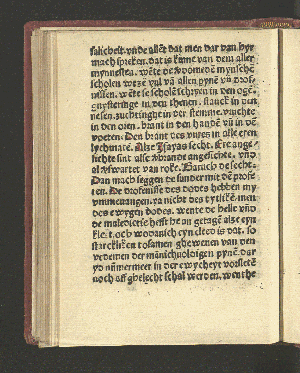 salicheit. vnde allent dat men dar van hyr
mach spreken. dat is kume van dem aller
mynnesten. wēte de vordomedē mynsche
scholen wesen vul vā allen pynē vn̄ drofe
nissen. wēte se scholē schryen in den oge.
gnysteringe in den thenen. stanck in den
nesen. suchtinghe in der stemme. vruchte
in den oren. brant in den handē vn̄ in dē
voeten. Den brant des vures in alle eren
lychmatē. Alze Isayas secht. Ere ange
sichte sint alse vorbrande angesichte. vn̄
al swartet van roke. Baruch de secht.
Dan mach seggen de sunder mit dē prose
ten. De drofenisse des dodes hebben my
vmmeuangen. ya nicht des tytlikē. men
des ewygen dodes. wente de helle vn̄
de maledicers hefft he an getagē alse eyn
kleet. och wodanich eyn cleet is dat. so
starckliken tosamen ghewenen van den
vedemen der mānichuoldigen pynē. dar
yo nūmermeer in der ewycheyt vorsletē
noch aff ghelecht schal werden. wenthe